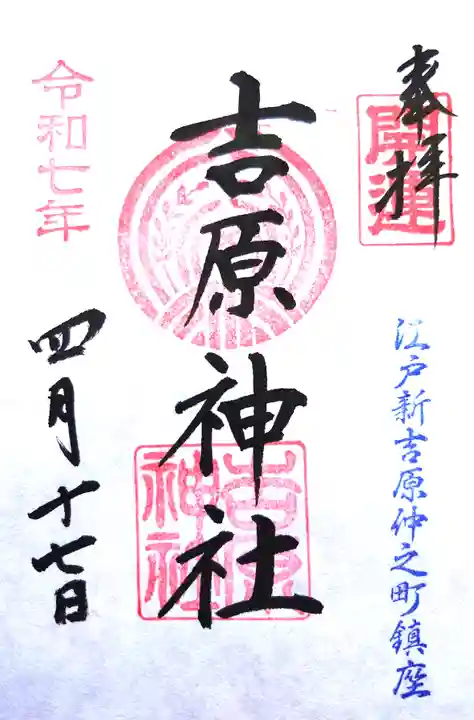 奉拝
開運
江戸新吉原仲之町鎮座
吉原神社
吉原神社
令和七年
四月十七日